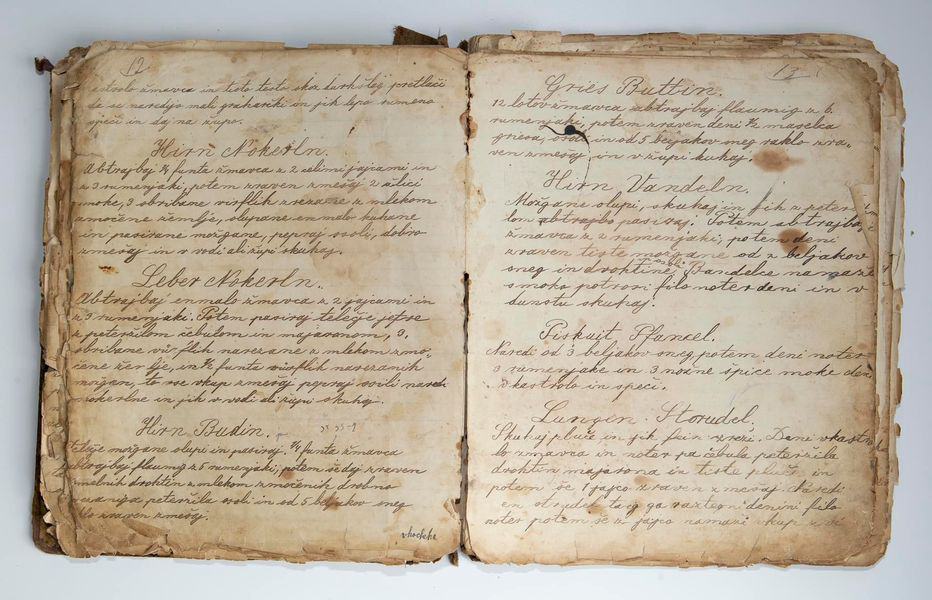 12
testo skoz durhšlog pretlači
da se naredjo mali grahariki in jih lepo rumeno
speči in daj na župo.
Hirn Nokerln.
Abtrajbaj ¼ funta žmavca z 2 celimi jajcami in
z 3 rumenjaki, potem zraven zmesaj 2 žlici
moke, 3 obribane virflih zrezane z mlekom
amočene žemlje, olupane en malo kuhane
in pasirane možgane, pepraj osoli, dobro
zmesaj in v vodi ali župi skuhaj.
Leber Nokerln.
Abtrajbaj en malo žmavca z 2 jajcami in
z 3 rumenjaki. Potem pasiraj telečje jetre
z peteržilom čebulom in majaronam, 3
obribane virflih narezane z mlekom zmo-
čene žemlje, in ½ funta virflih narezanih
možgen, to vse vkup zmesaj pepraj osoli naredi
nokerlne in jih v vodi ali župi skuhaj.
Hirn Budin.
Telečje možgane olupi in pasiraj. ¼ funta žmavca
abtrajbaj flaumig z 5 rumenjaki, potem še daj zraven
drohtin z mlekom zmočenih drobno
peteržila osoli in od 5 beljakov sneg
zraven zmesaj.
13
Gries Buttin.
12 lotov žmavca abtrajbaj flaumig z 6
rumenjaki, potem zraven deni ½ maselca
griesa, osoli in od 5 beljakov sneg rahlo zra-
ven zmesaj in v župi kuhaj.
Hirn Vandeln.
Možgane olupi, skuhaj in jih z peter-
lom abtrajbo pasiraj. Potem abtrajbaj
žmavca z 2 rumenjaki, potem deni
zraven tiste možgane od 2 beljakov
sneg in drohtine, Bandelce namaži
smoko potrosi filo noter deni in v
dunstu skuhaj.
Piskuit Pfancel.
Naredi od 3 beljakov sneg potem deni noter
3 rumenjake in 3 nožne špice moke deni
v kastrolo in speci.
Lungen Storudel.
Skuhaj pluče in jih fein zreži. Deni v kastro
lo žmavca in noter pa čebula peteržila
drohtin majarona in tiste pluče, in
potem še 1 jajco zraven zmesaj naredi
en štrudel ta ga raztegni deni filo
noter potem se z jajco namaži vkup